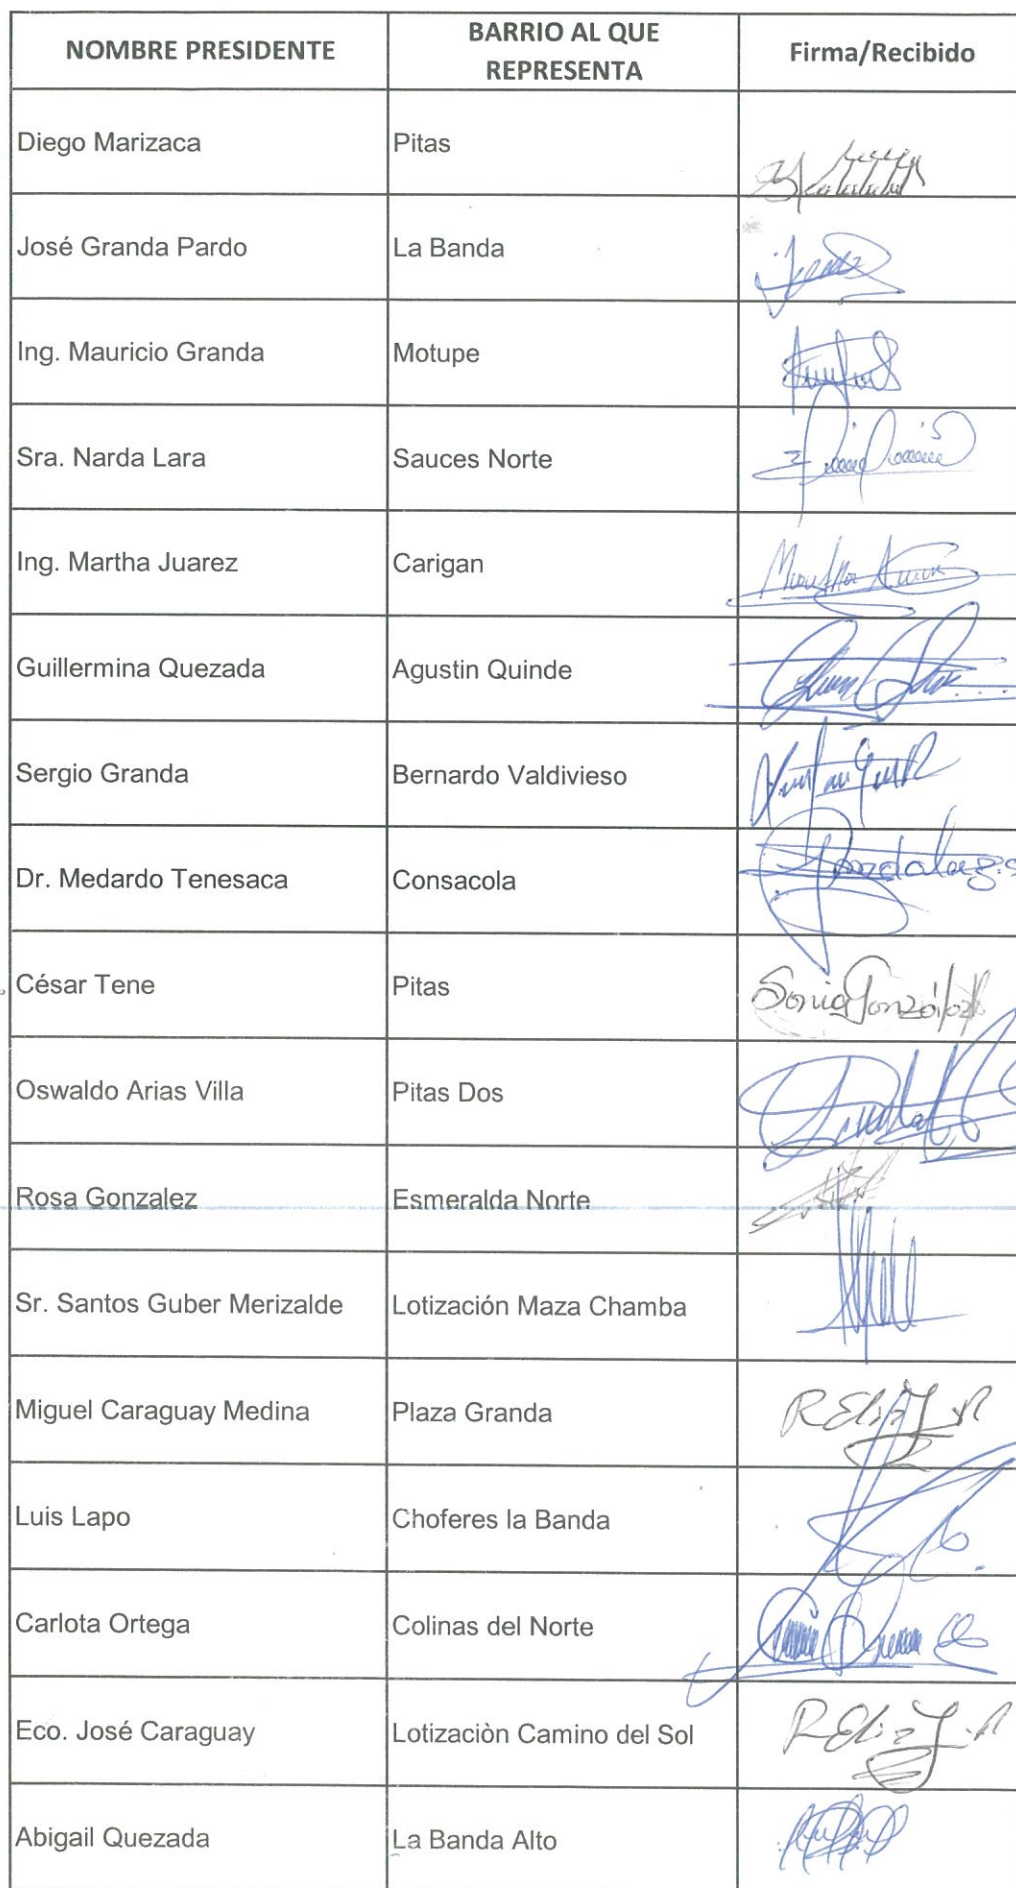 NOMBRE PRESIDENTE BARRIO AL QUE REPRESENTA Firma/Recibido
Diego Marizaca Pitas
José Granda Pardo La Banda
Ing. Mauricio Granda Motupe
Sra. Narda Lara Sauces Norte
Ing. Martha Juarez Carigan
Guillermina Quezada Agustin Quinde
Sergio Granda Bernardo Valdivieso
Dr. Medardo Tenesaca Consacola
César Tene Pitas
Oswaldo Arias Villa Pitas Dos
Rosa Gonzalez Esmeralda Norte
Sr. Santos Guber Merizalde Lotización Maza Chamba
Miguel Caraguay Medina Plaza Granda
Luis Lapo Choferes la Banda
Carlota Ortega Colinas del Norte
Eco. José Caraguay Lotizaciòn Camino del Sol
Abigail Quezada La Banda Alto